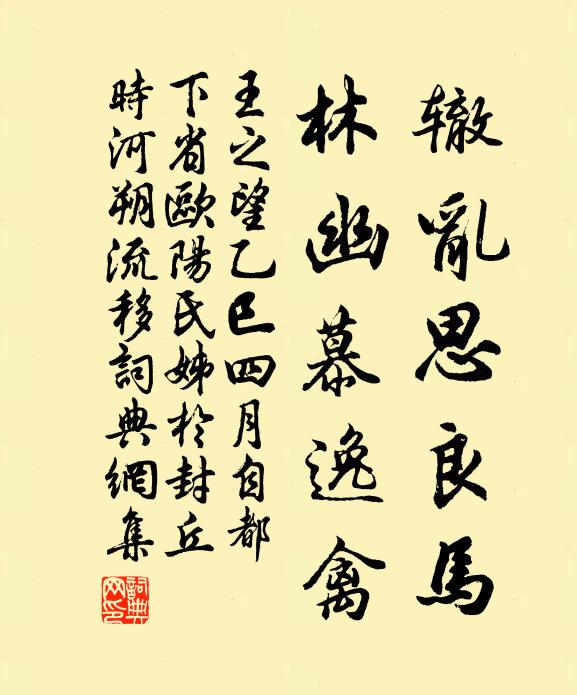 辙亂思良馬
林幽慕逸禽
王之望乙巳四月自都
下省歐陽氏姊於封丘
時河朔流移詞典網集
詞典網印